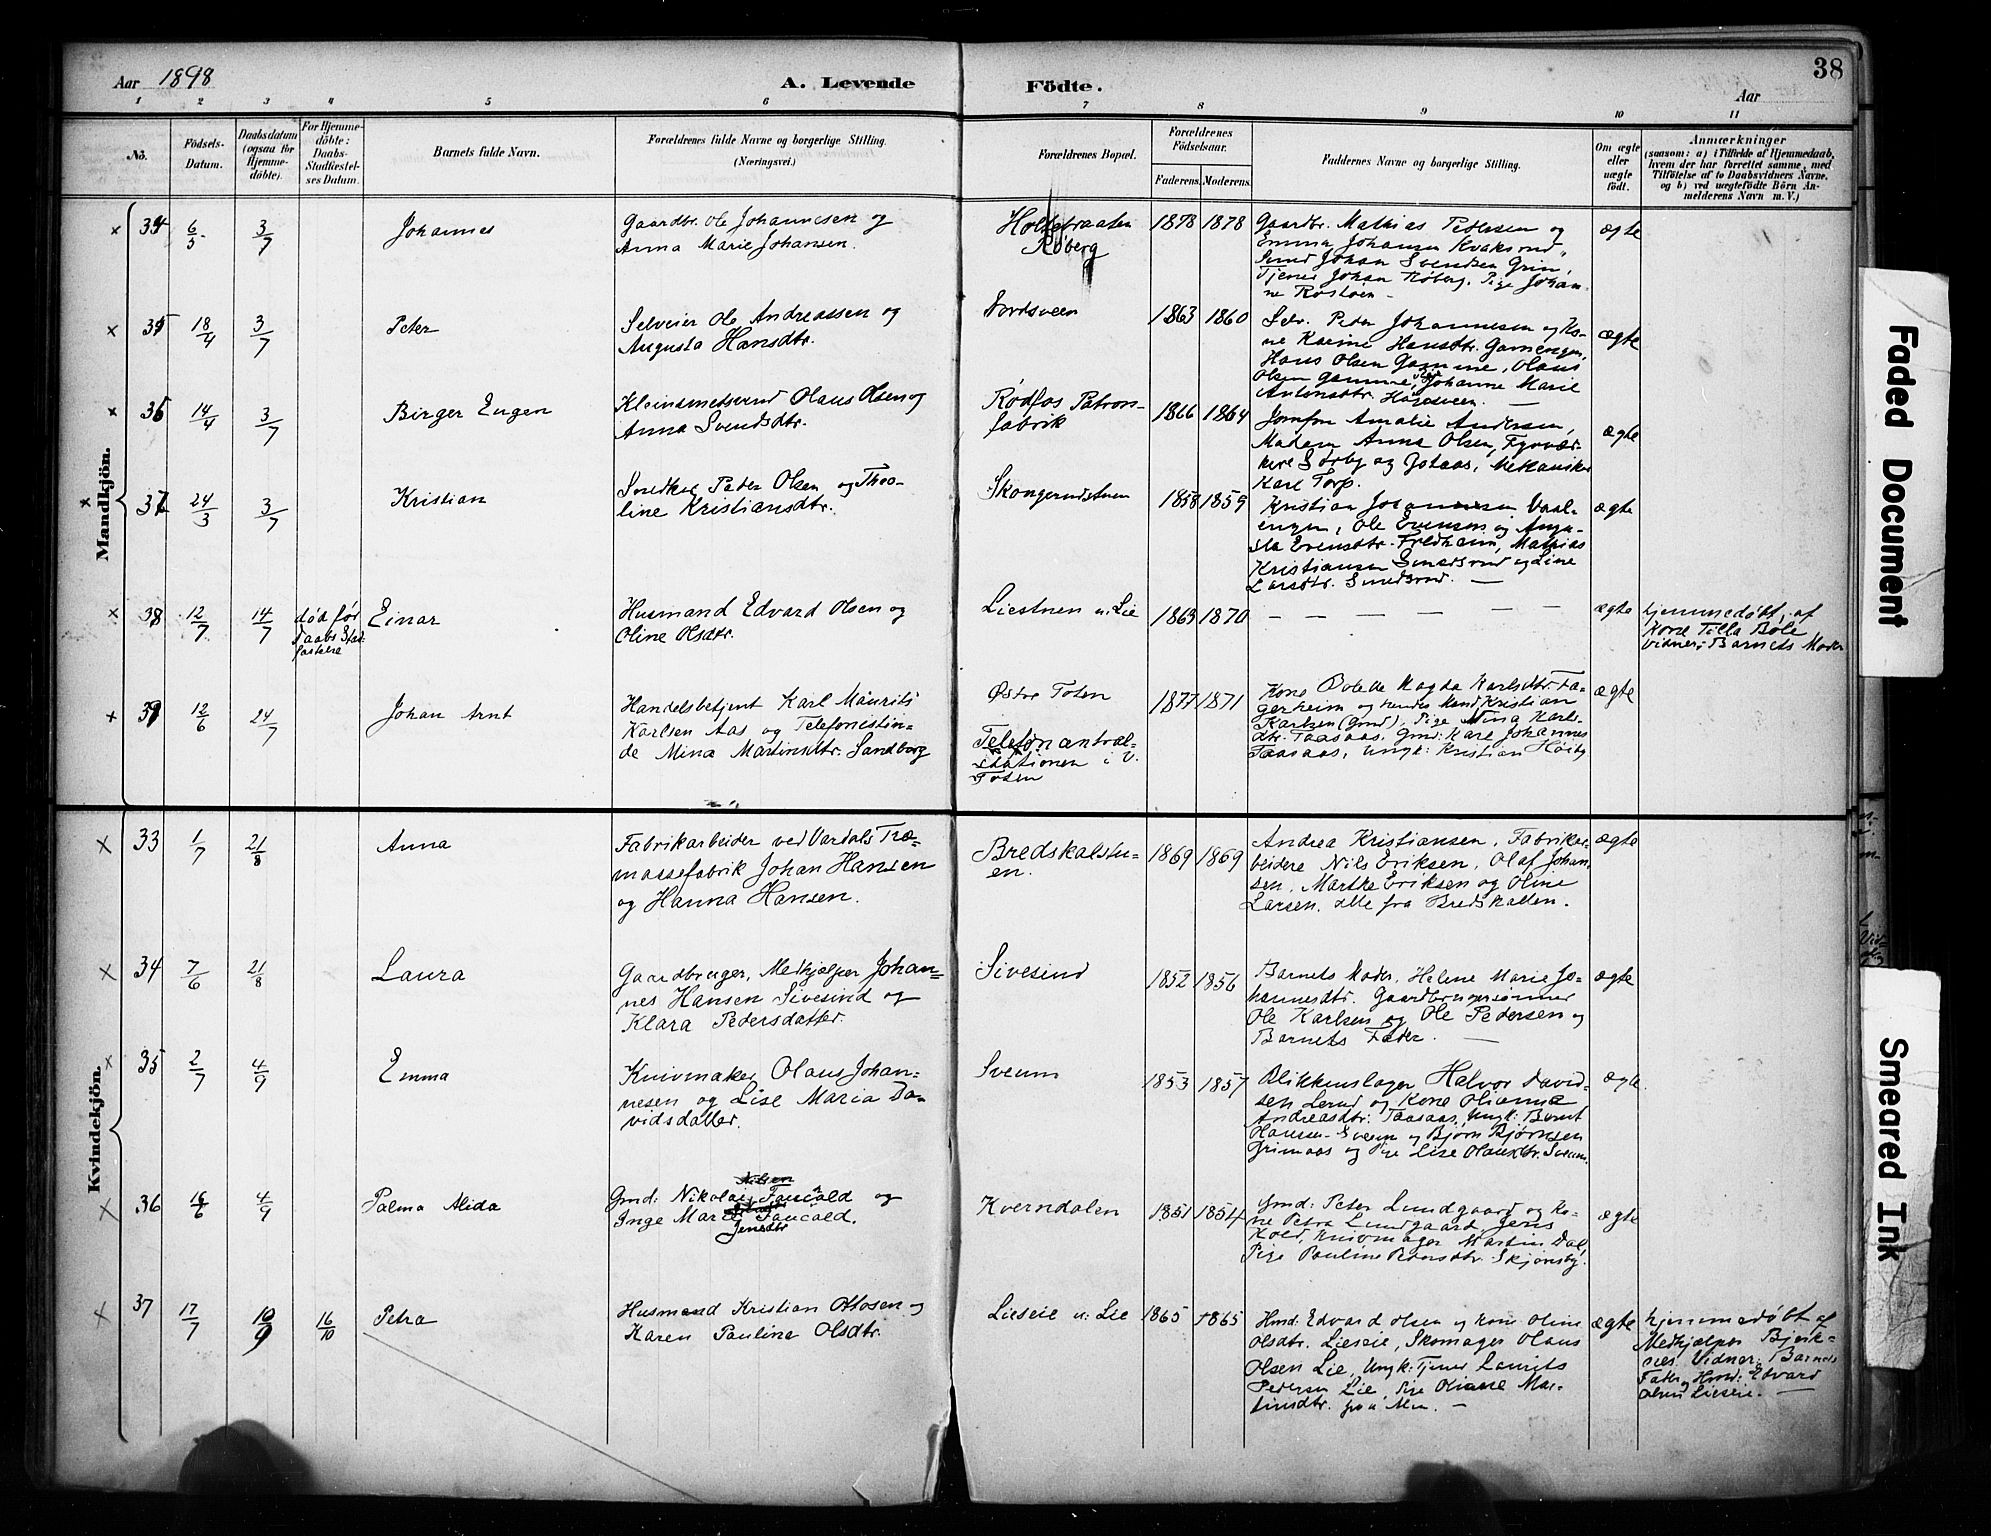 Aar 1898
A. Levende
Födte.
Aar
38
1 2 3 4 5 6 7 8 9 10 11
No.
Födsels-
Datum.
Daabsdatum
(ogsaa för
Hjemme-
döbte).
For Hjemme-
döbte:
Daabs-
Stadfæstel-
ses Datum.
Barnets fulde Navn.
Forældrenes fulde Navne og borgerlige Stilling.
(Næringsvei.)
Forældrenes Bopæl.
Forældrenes
Födselsaar.
Faderens. Moderens.
Faddernes Navne og borgerlige Stilling.
Om ægte
eller
uægte
födt.
Anmærkninger
(saasom: a) i Tilfælde af Hjemmedaab,
hvem der har forrettet samme, med
Tilföielse af to Daabsvidners Navne,
og b) ved uægtefödte Börn An-
melderens Navn m. V.)
Mandkjön.
× 34 6/5 3/7 Johannes
Gaardbr. Ole Johannesen og
Anna Marie Johansen.
Røberg
1878 1878
Gaardbr. Mathias Pedersen og
Emma Johansen Kvaksrud,
Smed Johan Svendsen Grin,
Tjener Johan Røberg. Pige Johan-
ne Rostøen –
ægte
× 35 18/4 3/7 Peter
Selveier Ole Andreassen og
Augusta Hansdtr.
Nordsveen
1863 1860
Selv. Peder Johannesen og Ko-
ne Karine Hansdtr. Gamengen,
Hans Olsen Gamme, Olaus
Olsen Gamme, Johanne Marie
Antonsdtr. –
ægte
× 36 14/4 3/7 Birger Eugen
Kleinsmedsvend Olaus Olsen og
Anna Svendsdtr.
Rødfos Patron-
fabrik
1866 1864
Jomfru Amalie Andersen,
Madam Anna Olsen, Fyrvær-
kere Sørby og Johaas, Mekaniker
Karl Torp.
ægte
× 37 24/3 3/7 Kristian
Smedkar Peder Olsen og Theo-
line Kristiansdtr.
Skongerudstuen
1858 1859
Kristian Johannesen Vaal-
engen, Ole Evensen og Augu-
sta Evensdtr. Fredheim, Mathias
Kristiansen Smedsrud og Line
Larsdtr. Smedsrud. –
ægte
× 38 12/7 14/7
død før
Daabs Stad-
fæstelse
Einar
Husmand Edvard Olsen og
Oline Olsdtr.
Liestuen u. Lie
1863 1870
– – – – – –
ægte
hjemmedøbt af
Kone Tilla Bøle
Vidner: Barnets Moder
× 39 12/6 24/7 Johan Arnt
Handelsbetjent Karl Maurits
Karlsen Aas og Telefonistin-
de Mina Martinsdtr. Sandberg
Østre Toten
Telefoncentral-
stationen i V.
Toten
1877 1871
Kone Bolette Magda Karlsdtr. Fa-
gerheim og hendes Mand Kristian
Karlsen (Gmd), Pige Nina Karls-
dtr. Taasaas, Gmd: Karl Johannes
Taasaas, Ungk: Kristian Høiby
ægte
Kvindekjön.
× 33 1/7 21/8 Anna
Fabrikarbeider ved Vardals Træ-
massefabrik Johan Hansen
og Hanna Hansen.
Bredskalstu-
en.
1869 1869
Andrea Kristiansen, Fabrikar-
beidere Nils Eriksen, Olaf Johan-
sen, Marthe Eriksen og Oline
Larsen, alle fra Bredskallen.
ægte
× 34 7/6 21/8 Laura
Gaardbruger, Medhjælper Johan-
nes Hansen Sivesind og
Klara Pedersdatter.
Sivesind
1852 1856
Barnets Moder, Helene Marie Jo-
hannesdtr. Gaardbrugersønner
Ole Karlsen og Ole Pedersen og
Barnets Fader. –
ægte
× 35 2/7 4/9 Emma
Knivmaker Olaus Johan-
nesen og Lise Maria Da-
vidsdatter.
Sveum
1853 1857
Blikkenslager Halvor David-
sen Lerud og Kone Olianne
Andreasdtr. Taasaas, Ungk: Bernt
Hansen Sveum og Bjørn Bjørnsen
Grimaas og Pige Lise Olausdtr. Sveum.
ægte
× 36 16/6 4/9 Palma Alida
Nilsen
Gmd: Nikolai Faucald og
Inge Marie Faucald.
Jensdtr
Kverndalen
1851 1854
Gmd: Peter Lundgaard og Ko-
ne Petra Lundgaard, Jens
Kold, Knivmager Martin Dal,
Pige Pauline Skjønsby.
ægte
× 37 17/7 10/9 16/10 Petra
Husmand Kristian Ottosen og
Karen Pauline Olsdtr.
Lieseie u: Lie
1865 1865
Hmd: Edvard Olsen og Kone Oline
Olsdtr. Lieseie, Skomager Olaus
Olsen Lie, Ungk: Tjener Laurits
Pedersen Lie, Pige Oliane Mar-
tinsdtr. fra Alm. –
ægte
hjemmedøbt af
Medhjælper Bjerk-
nes Vidner: Barnets
Fader og Hmd: Edvard
Olsen Lieseie. –
Faded Document
Smeared Ink